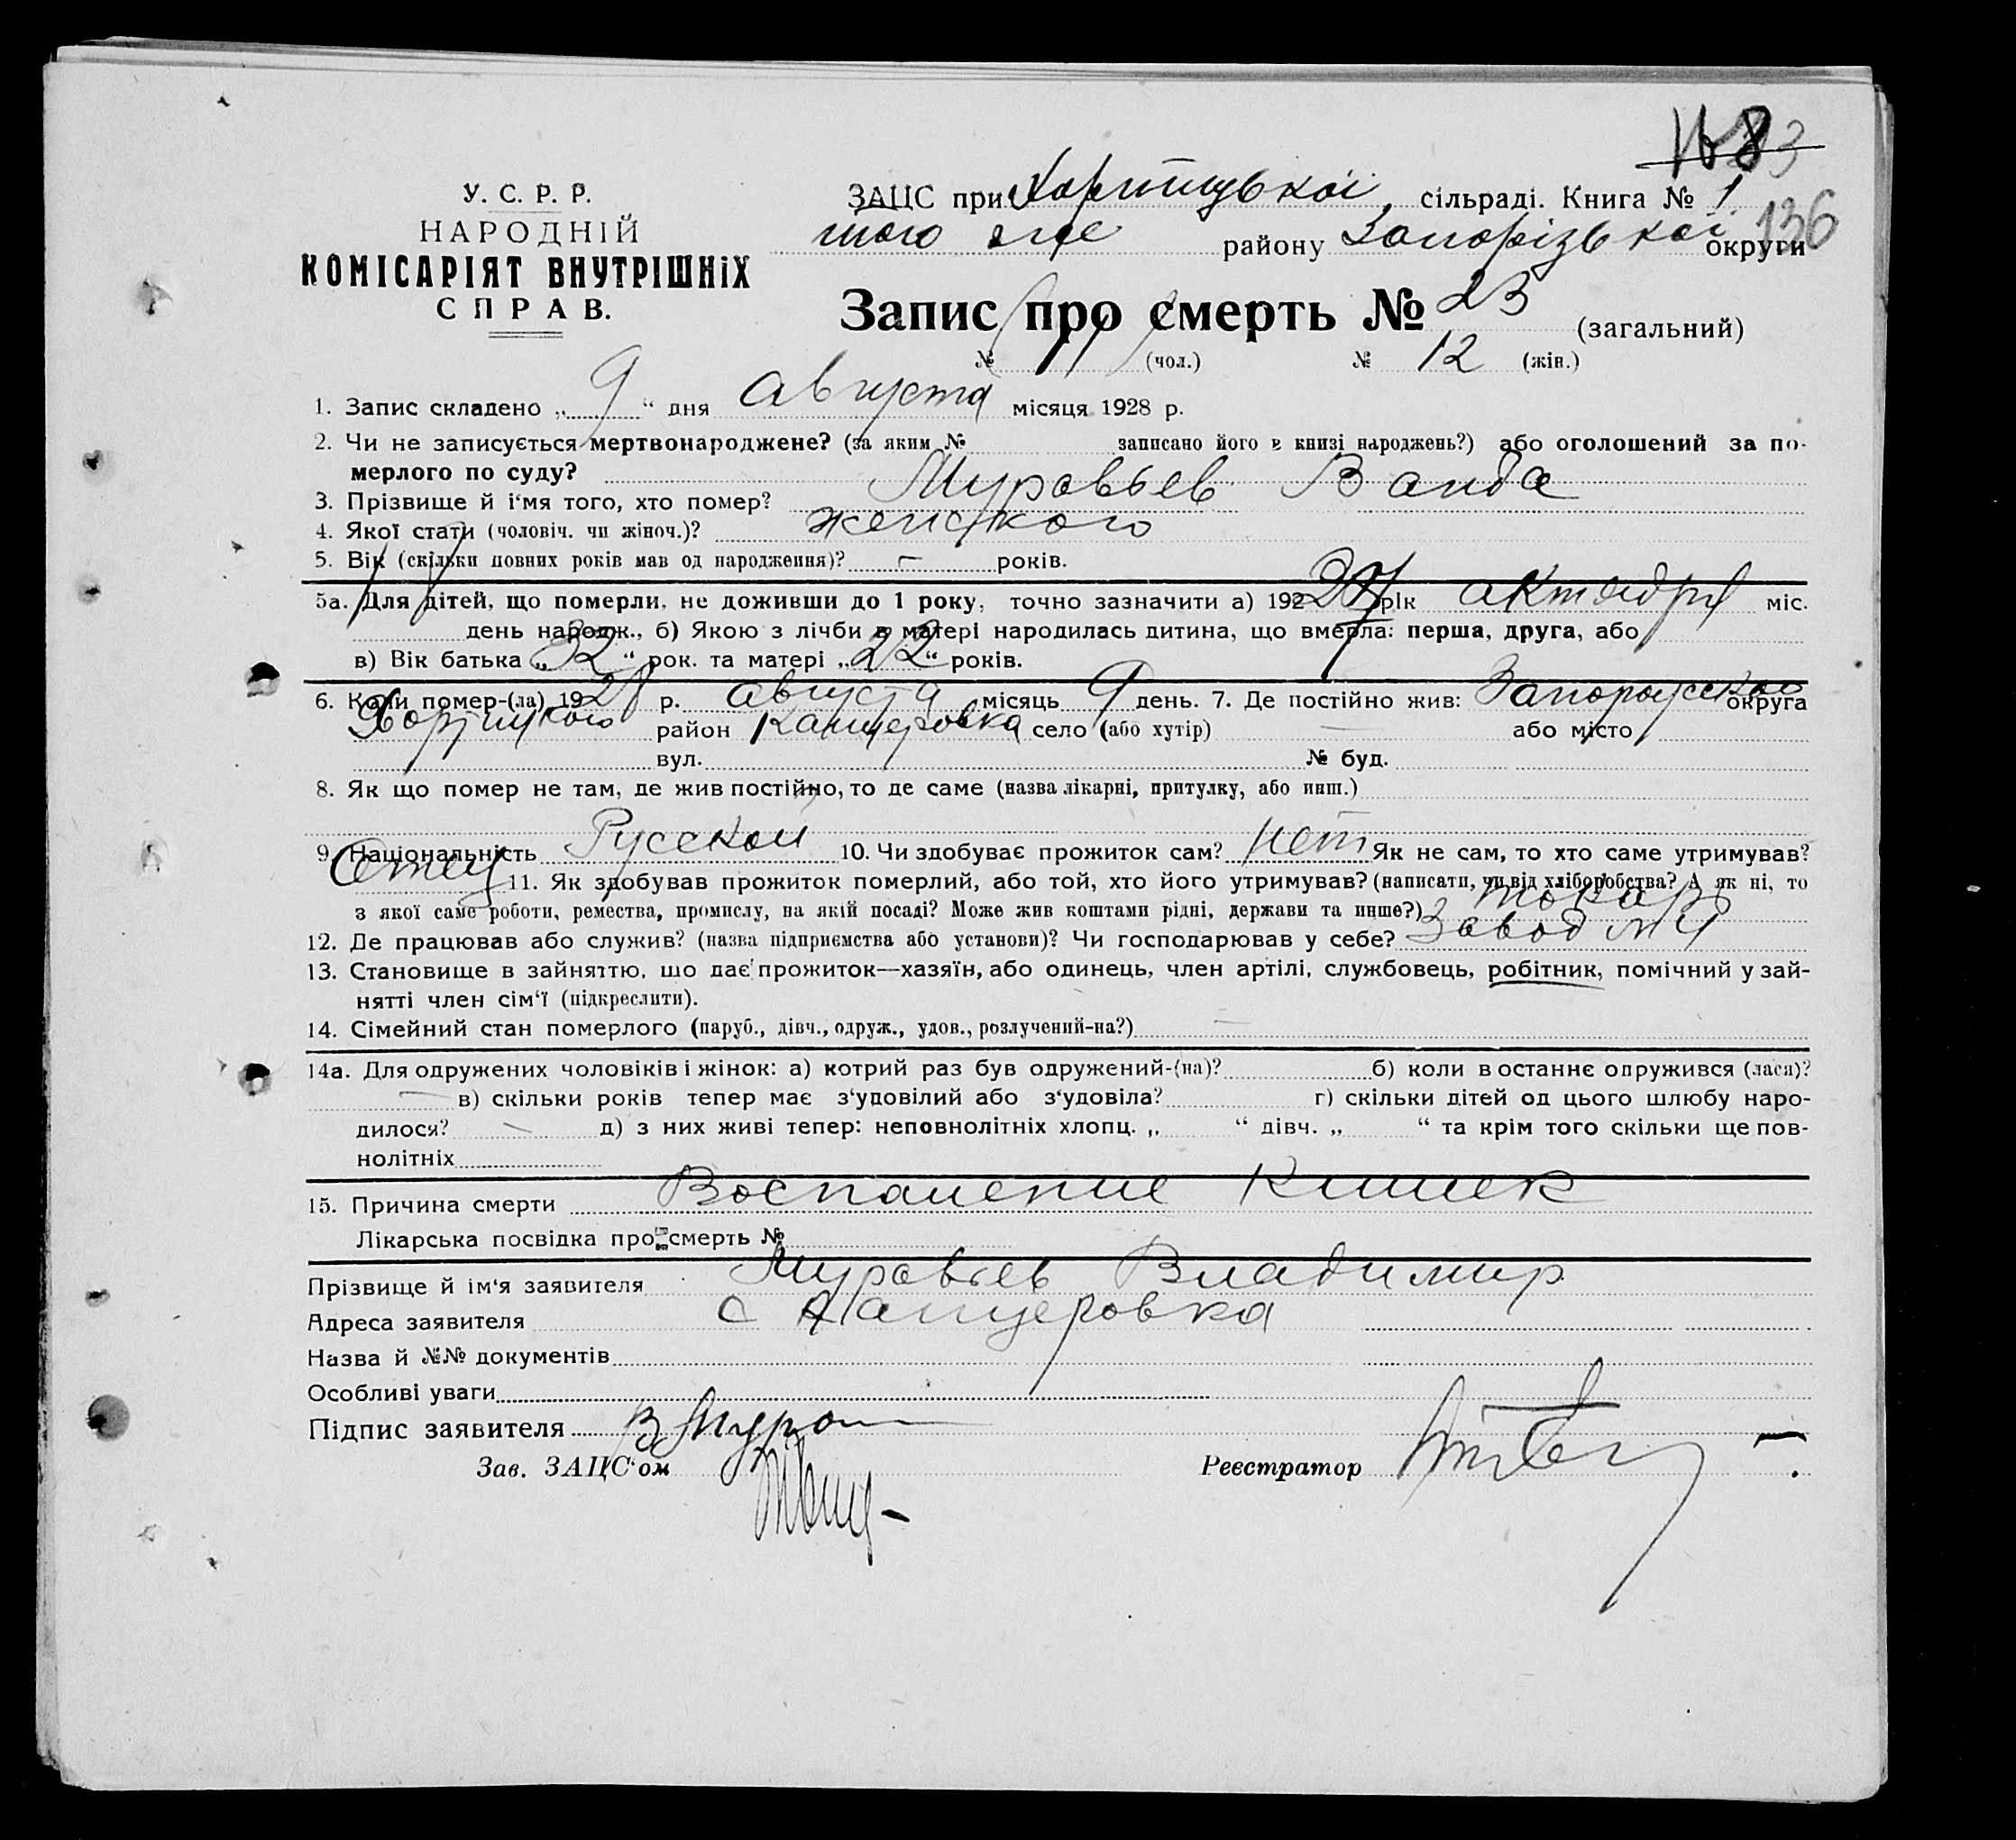 136
У. С. Р. Р.
НАРОДНІЙ
КОМІСАРІЯТ ВНУТРІШНІХ
СПРАВ.
ЗАЦС при Хортицької сільраді. Книга № 1
того же району Запорізької округи
Запис про смерть № 23 (загальний)
№ 11 (чол.) № 12 (жін.)
1. Запис складено „ 9 “ дня Августа місяця 1928 р.
2. Чи не записується мертвонароджене? (за яким № записано його в книзі народжень?) або оголошений за по-
мерлого по суду?
3. Прізвище й і‘мя того, хто помер? Муравьев Ванда
4. Якої стати (чоловіч. чи жіноч.)? женского
5. Вік (скільки повних років мав од народження)? — років.
5а. Для дітей, що померли, не доживши до 1 року, точно зазначити а) 192 27 рік октября міс.
день народж., б) Якою з лічби в матері народилась дитина, що вмерла: перша, друга, або
в) Вік батька „ 32 “ рок. та матері „ 22 “ років.
6. Коли помер-(ла) 1928 р. августа місяць 9 день. 7. Де постійно жив: Запорожской округа
Хортицкого район Канцеровка село (або хутір) — або місто
вул. № буд.
8. Як що помер не там, де жив постійно, то де саме (назва лікарні, притулку, або инш.)
9. Національність Русской 10. Чи здобуває прожиток сам? нет Як не сам, то хто саме утримував?
Отец 11. Як здобував прожиток померлий, або той, хто його утримував? (написати, чи від хліборобства? А як ні, то
з якої саме роботи, ремества, промислу, на якій посаді? Може жив коштами рідні, держави та инше?) токарь
12. Де працював або служив? (назва підприємства або установи)? Чи господарював у себе? Завод №4
13. Становище в зайняттю, що дає прожиток—хазяїн, або одинець, член артілі, службовець, робітник, помічний у зай-
нятті член сім‘ї (підкреслити).
14. Сімейний стан померлого (паруб., дівч., одруж., удов., розлучений-на?) —
14а. Для одружених чоловіків і жінок: а) котрий раз був одружений-(на)? б) коли востаннє одружився (лася)?
— в) скільки років тепер має з‘удовілий або з‘удовіла? г) скільки дітей од цього шлюбу наро-
дилося? — д) з них живі тепер: неповнолітніх хлопц. „ “ дівч. „ “ та крім того скільки ще пов-
нолітніх
15. Причина смерти Воспаление Кишек
Лікарська посвідка про смерть №
Прізвище й ім‘я заявителя Муравьев Владимир
Адреса заявителя с Канцеровка
Назва й №№ документів
Особливі уваги
Підпис заявителя В Мура
Зав. ЗАЦС‘ом
Реєстратор